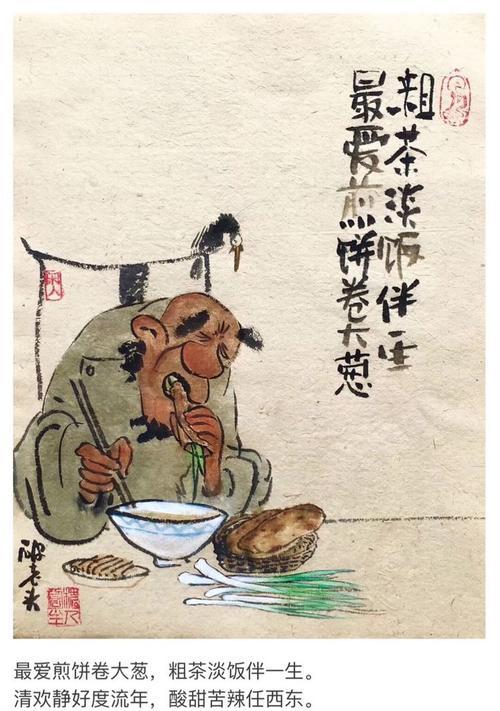 粗茶淡饭伴一生
最爱煎饼卷大葱
最爱煎饼卷大葱，粗茶淡饭伴一生。
清欢静好度流年，酸甜苦辣任西东。